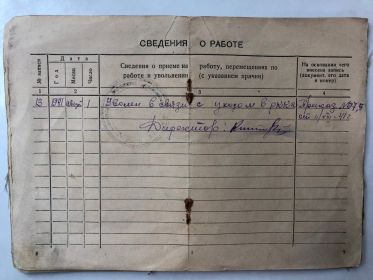 СВЕДЕНИЯ О РАБОТЕ
№ записи
Дата
Год
Месяц
Число
Сведения о приеме на работу, перемещениях по
работе и увольнении (с указанием причин)
На основании чего
внесена запись
(документ, его дата
и номер)
1 2 3 4
13 1941 август 1 Уволен в связи с уходом в РККА Приказ №
Директор: